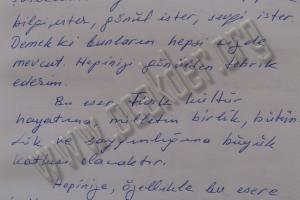 bilgi ister, gönül ister, sevgi ister.
Demek ki bunların hepsi sizde
mevcut. Hepinizi gönülden tebrik
ederim.
Bu eser, Türk kültür
hayatına, milletin birlik, bütün
lük ve saygınlığına büyük
katkısı olacaktır.
Hepinize, özellikle bu esere